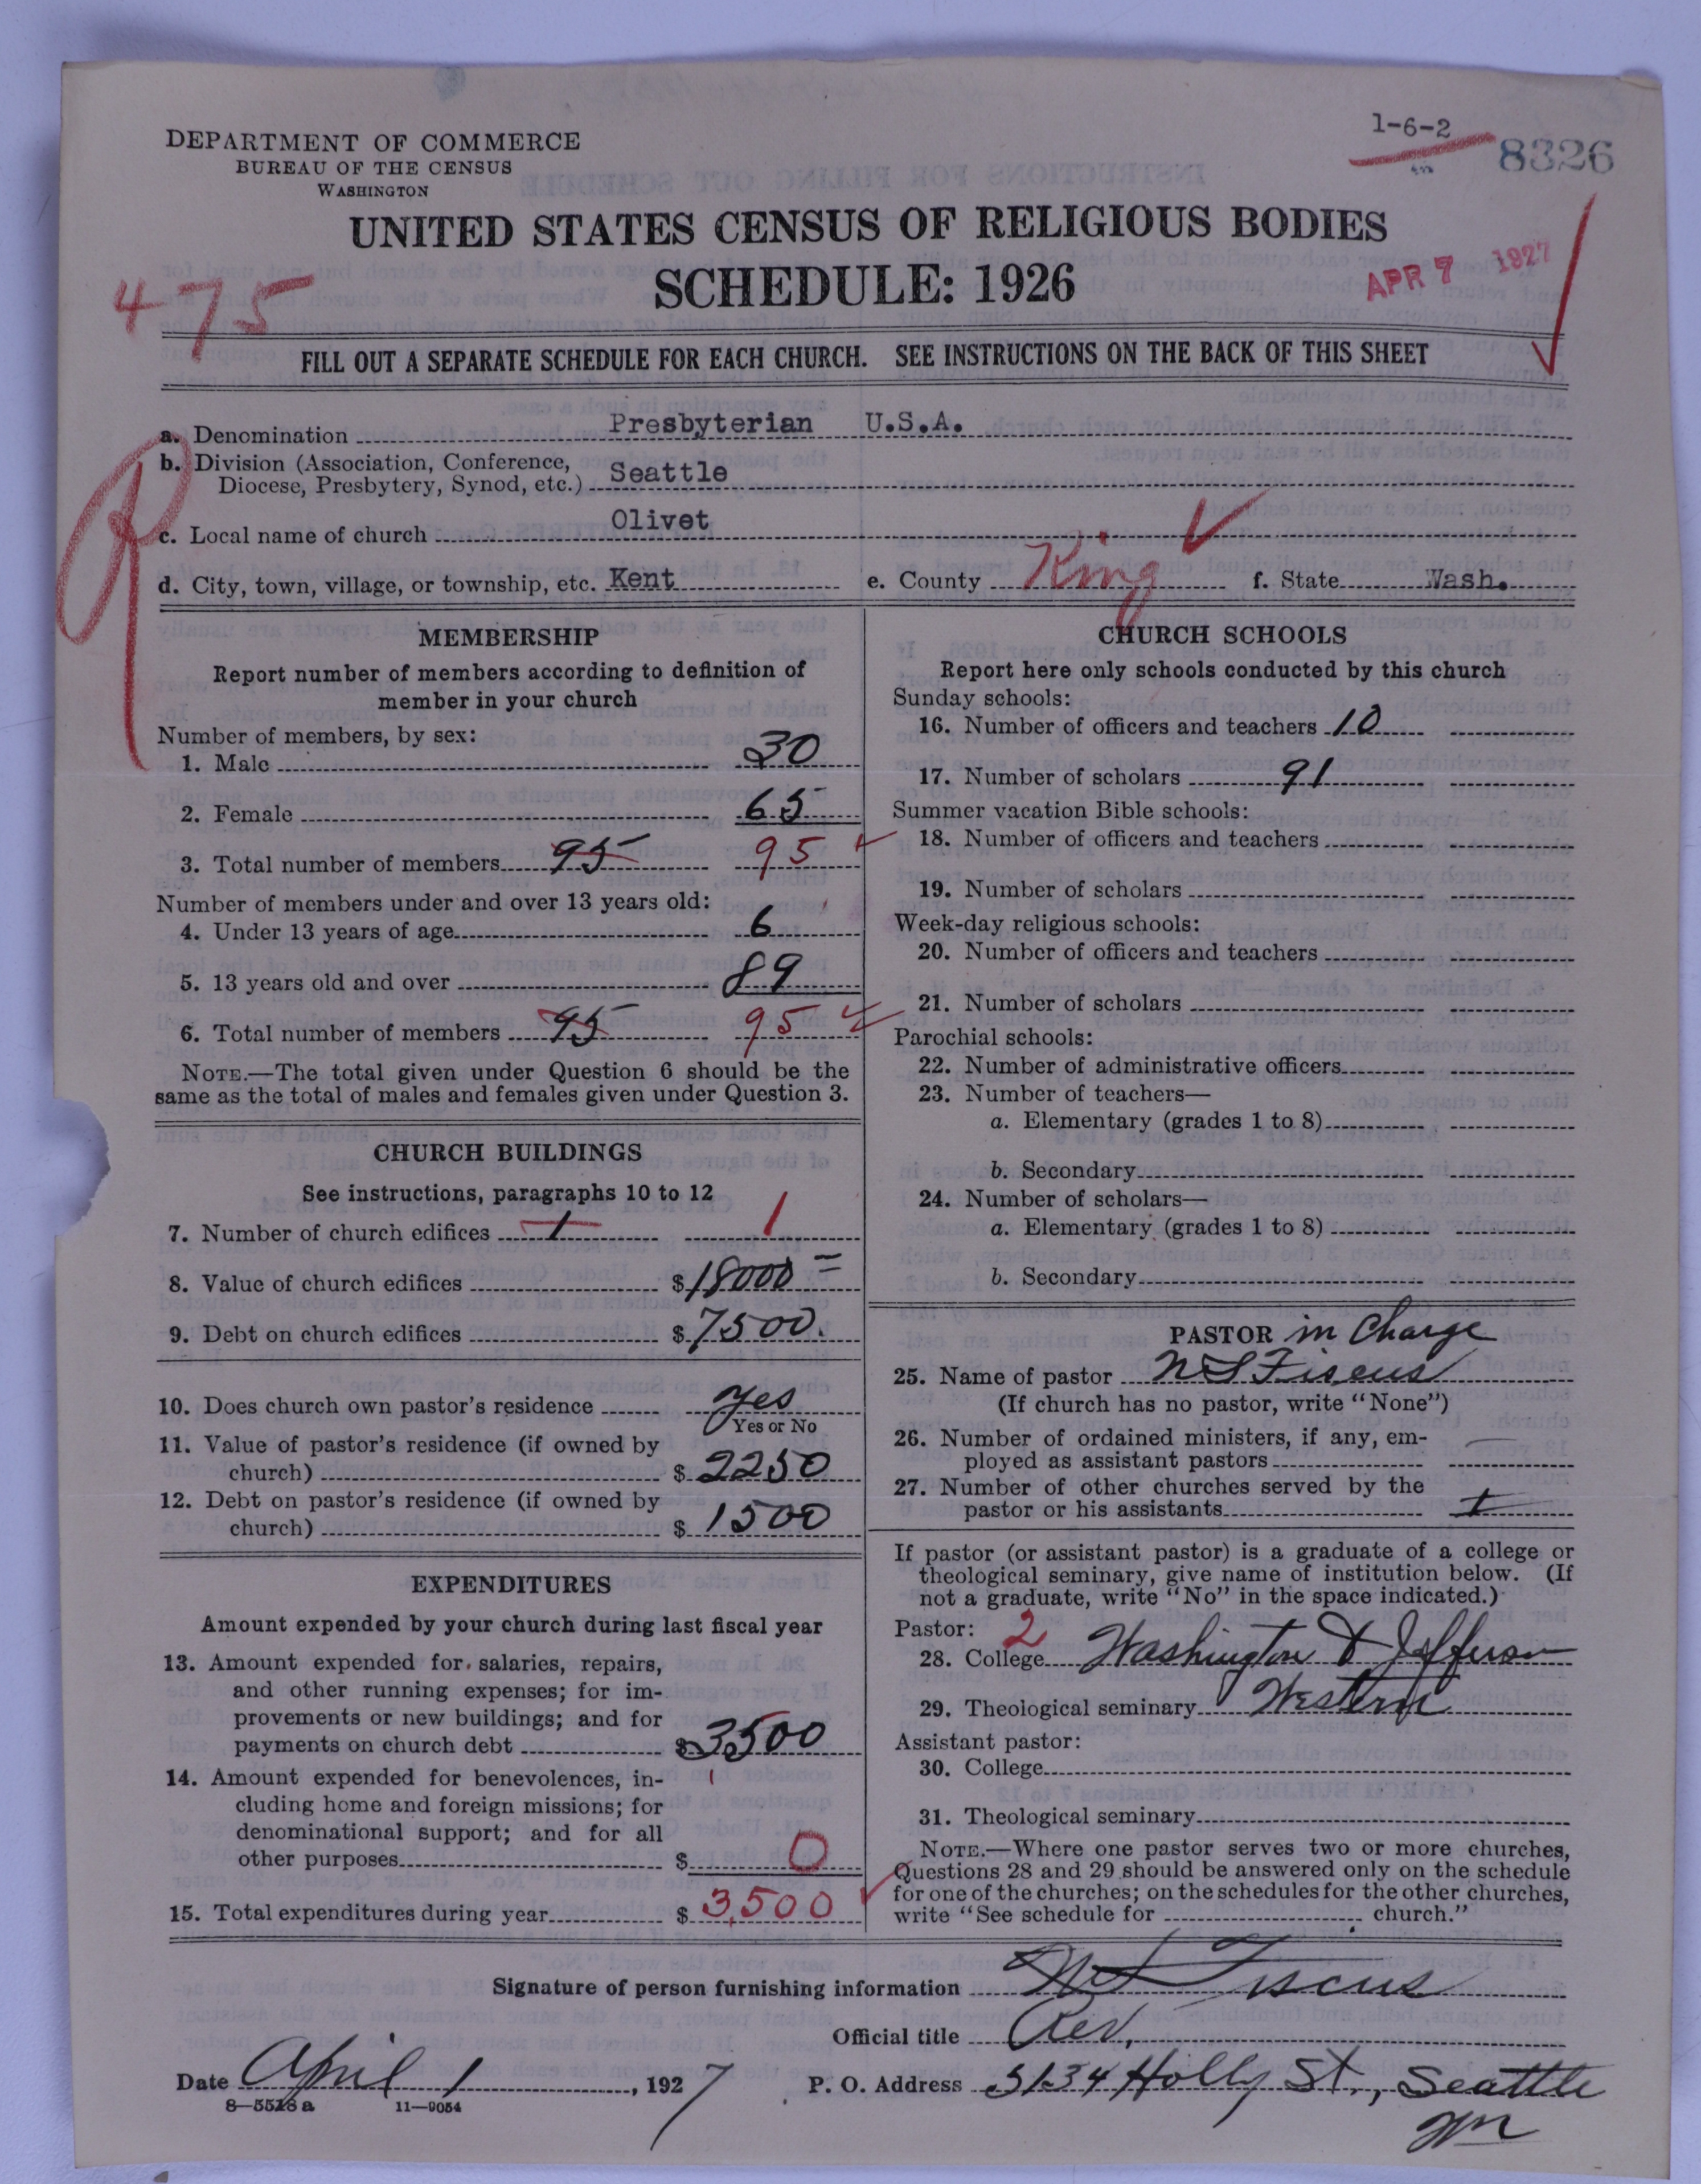 1-6-2
8326
DEPARTMENT OF COMMERCE
BUREAU OF THE CENSUS
WASHINGTON
UNITED STATES CENSUS OF RELIGIOUS BODIES
SCHEDULE: 1926
APR 7 1927
475
FILL OUT A SEPARATE SCHEDULE FOR EACH CHURCH. SEE INSTRUCTIONS ON THE BACK OF THIS SHEET
a. Denomination Presbyterian U.S.A.
b. Division (Association, Conference,
Diocese, Presbytery, Synod, etc.) Seattle
c. Local name of church Olivet
d. City, town, village, or township, etc. Kent e. County King f. State Wash.
MEMBERSHIP
Report number of members according to definition of
member in your church
Number of members, by sex:
1. Male 30
2. Female 65
3. Total number of members 95 95
Number of members under and over 13 years old:
4. Under 13 years of age 6
5. 13 years old and over 89
6. Total number of members 95 95
NOTE.—The total given under Question 6 should be the
same as the total of males and females given under Question 3.
CHURCH BUILDINGS
See instructions, paragraphs 10 to 12
7. Number of church edifices 1 1
8. Value of church edifices $18000 =
9. Debt on church edifices $7500.
10. Does church own pastor's residence yes
Yes or No
11. Value of pastor's residence (if owned by
church) $2250
12. Debt on pastor's residence (if owned by
church) $1500
EXPENDITURES
Amount expended by your church during last fiscal year
13. Amount expended for salaries, repairs,
and other running expenses; for im-
provements or new buildings; and for
payments on church debt $3500
14. Amount expended for benevolences, in-
cluding home and foreign missions; for
denominational support; and for all
other purposes $0
15. Total expenditures during year $3,500
CHURCH SCHOOLS
Report here only schools conducted by this church
Sunday schools:
16. Number of officers and teachers 10
17. Number of scholars 91
Summer vacation Bible schools:
18. Number of officers and teachers
19. Number of scholars
Week-day religious schools:
20. Number of officers and teachers
21. Number of scholars
Parochial schools:
22. Number of administrative officers
23. Number of teachers—
a. Elementary (grades 1 to 8)
b. Secondary
24. Number of scholars—
a. Elementary (grades 1 to 8)
b. Secondary
PASTOR in Charge
25. Name of pastor N S Fiscus
(If church has no pastor, write "None")
26. Number of ordained ministers, if any, em-
ployed as assistant pastors —
27. Number of other churches served by the
pastor or his assistants 1
If pastor (or assistant pastor) is a graduate of a college or
theological seminary, give name of institution below. (If
not a graduate, write "No" in the space indicated.)
Pastor: 2
28. College Washington & Jefferson
29. Theological seminary Western
Assistant pastor:
30. College
31. Theological seminary
NOTE.—Where one pastor serves two or more churches,
Questions 28 and 29 should be answered only on the schedule
for one of the churches; on the schedules for the other churches,
write "See schedule for church."
Signature of person furnishing information N S Fiscus
Official title Rev.
Date April 1, 1927 P. O. Address 5134 Holly St., Seattle
Wn
8—5518 a 11—9054